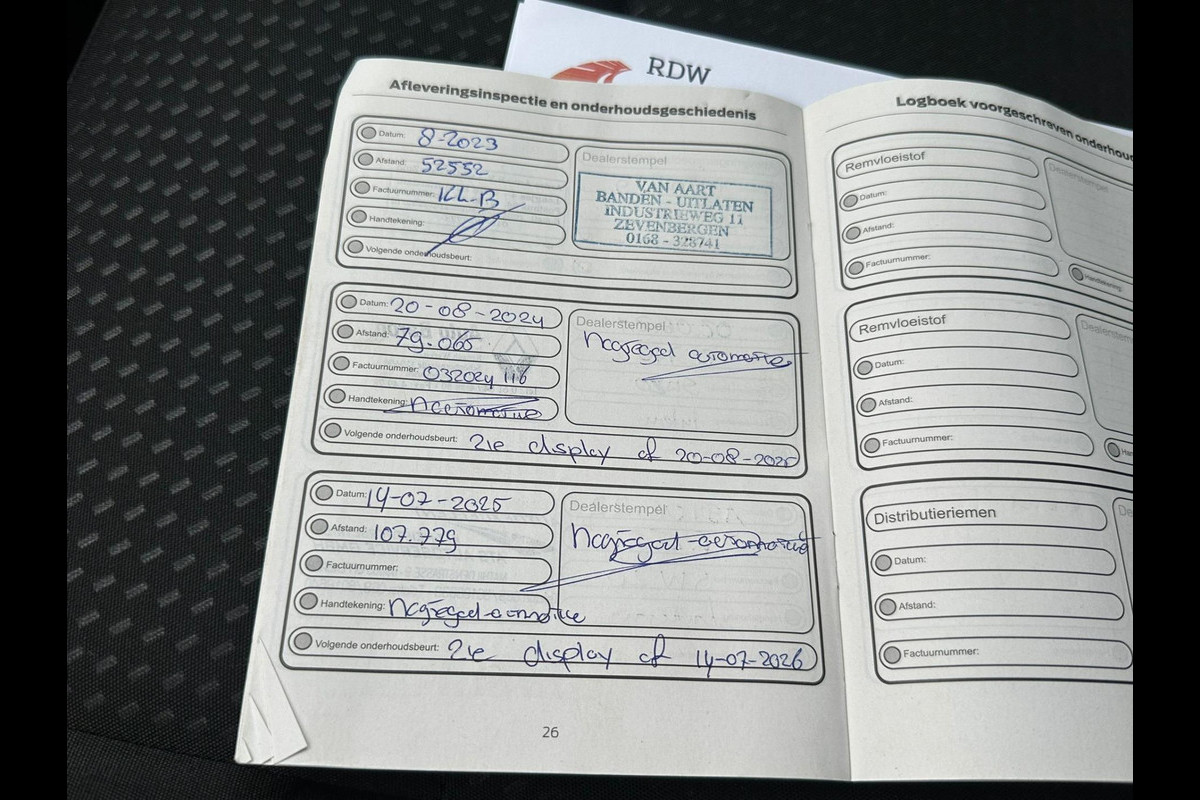 RDW
Afleveringsinspectie en onderhoudsgeschiedenis
Datum: 8-2023
Afstand: 52552
Factuurnummer: KL-B
Handtekening:
Volgende onderhoudsbeurt:
Dealerstempel
VAN AART
BANDEN - UITLATEN
INDUSTRIEWEG 11
ZEVENBERGEN
0168 - 328741
Datum: 20-08-2024
Afstand: 79.066
Factuurnummer: 032024 116
Handtekening:
Volgende onderhoudsbeurt: Zie display of 20-08-2025
Dealerstempel
Datum: 14-07-2025
Afstand: 107.779
Factuurnummer:
Handtekening:
Volgende onderhoudsbeurt: Zie display of 14-07-2026
Dealerstempel
26
Logboek voorgeschreven
Remvloeistof
Datum:
Afstand:
Factuurnummer:
Dealerstempel
Remvloeistof
Datum:
Afstand:
Factuurnummer:
Distributieriemen
Datum:
Afstand:
Factuurnummer: